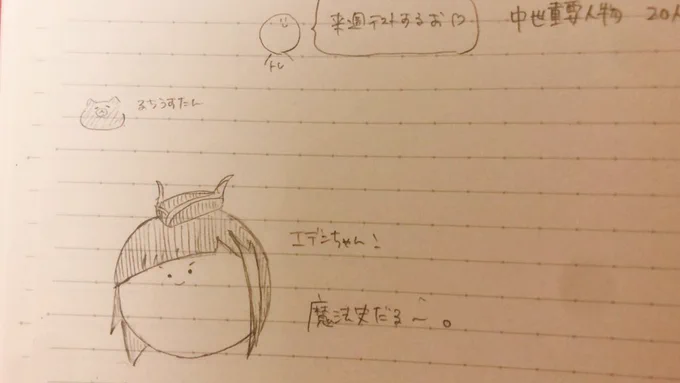 来週テストするお♡
中世重要人物 20人
トレ
るちうすたん
エデンちゃん!
魔法史だる〜。